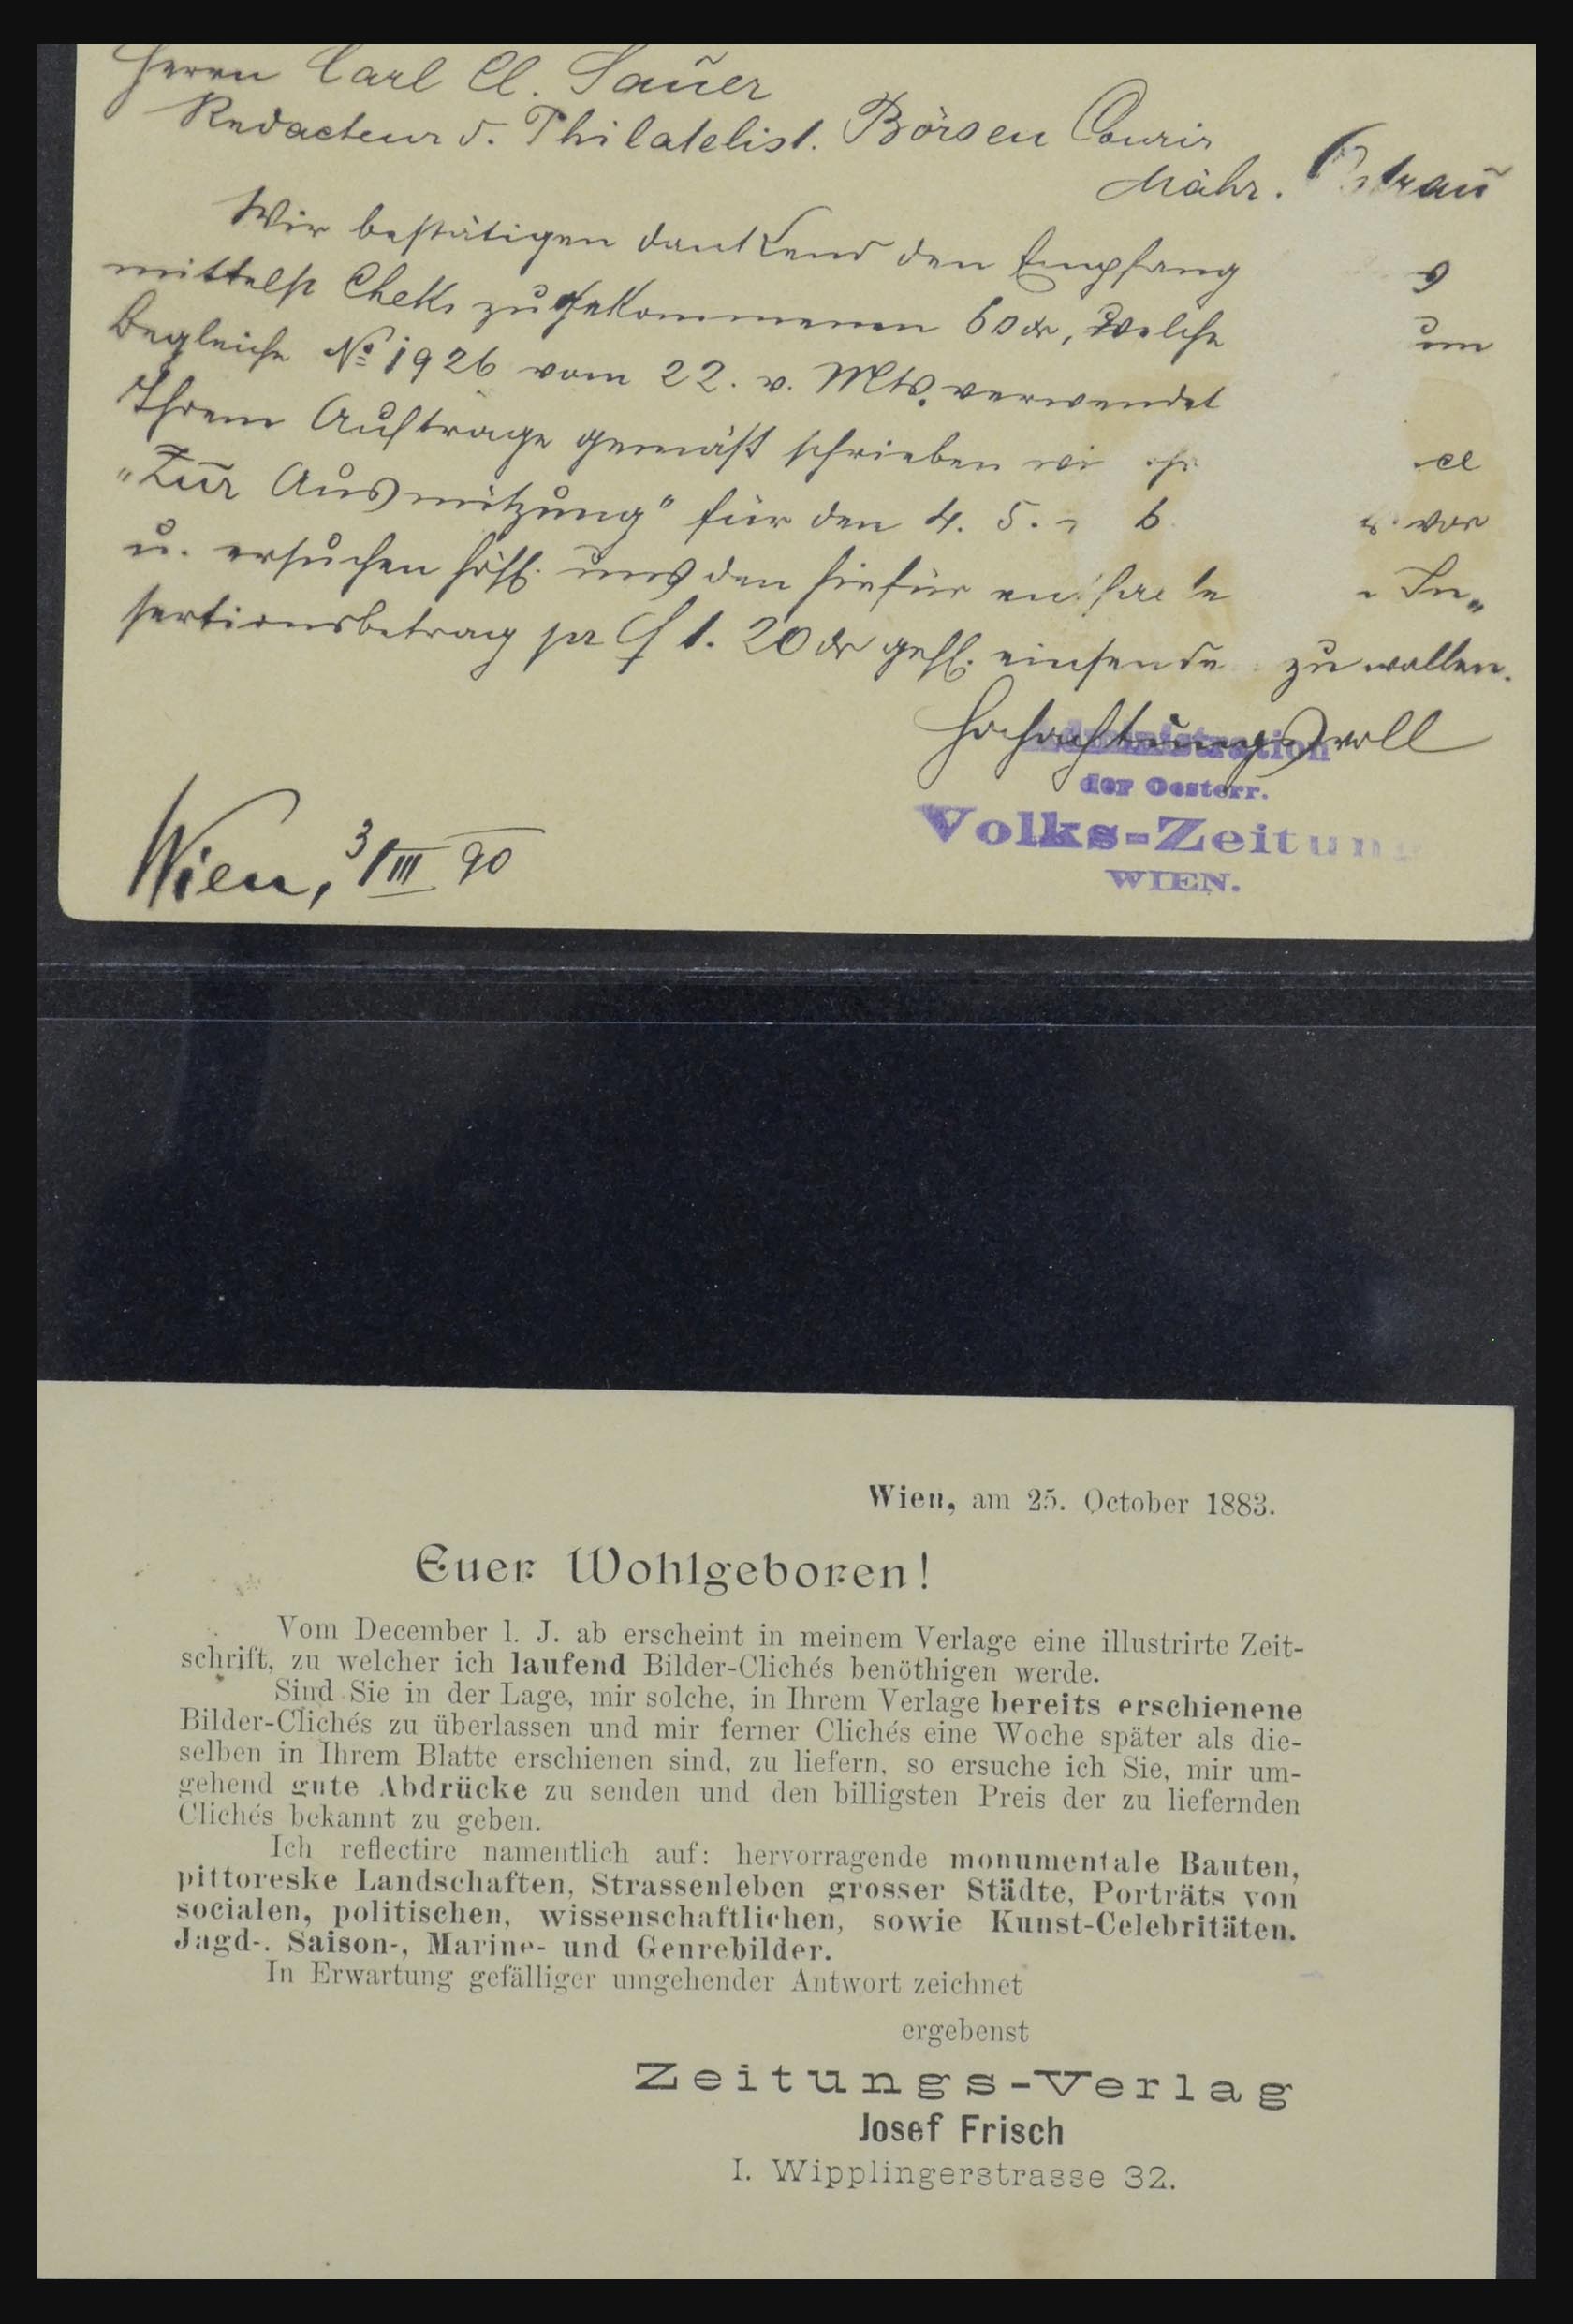 Herrn Carl Cl. Sauer
Redacteur d. Philatelist. Börsen Courir
Mähr. Ostrau
Wir bestätigen dankend den Empfang
mittelst Cheks zugekommenen 60 kr, welche
Begleiche № 1926 vom 22. v. Mts. verwendet
Ihrem Auftrage gemäß schrieben
"Zur Ausnützung" für den 4. 5. 6 vor
u. ersuchen höfl. uns den hiefür In„
sertionsbetrag pr f 1. 20 kr gefl. einsende zu wollen.
Hochachtungsvoll
Administration
der Oesterr.
Volks-Zeitung
WIEN.
Wien, 3/III 90
Wien, am 25. October 1883.
Euer Wohlgeboren!
Vom December l. J. ab erscheint in meinem Verlage eine illustrirte Zeit-
schrift, zu welcher ich laufend Bilder-Clichés benöthigen werde.
Sind Sie in der Lage, mir solche, in Ihrem Verlage bereits erschienene
Bilder-Clichés zu überlassen und mir ferner Clichés eine Woche später als die-
selben in Ihrem Blatte erschienen sind, zu liefern, so ersuche ich Sie, mir um-
gehend gute Abdrücke zu senden und den billigsten Preis der zu liefernden
Clichés bekannt zu geben.
Ich reflectire namentlich auf: hervorragende monumentale Bauten,
pittoreske Landschaften, Strassenleben grosser Städte, Porträts von
socialen, politischen, wissenschaftlichen, sowie Kunst-Celebritäten.
Jagd-. Saison-, Marine- und Genrebilder.
In Erwartung gefälliger umgehender Antwort zeichnet
ergebenst
Zeitungs-Verlag
Josef Frisch
I. Wipplingerstrasse 32.